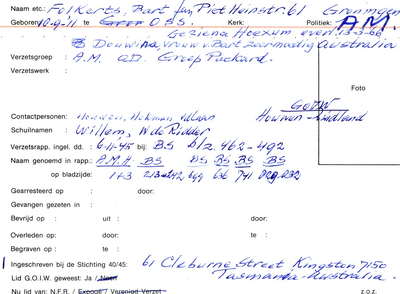 Naam etc.: Folkerts, Bart fan, Piet Heinstr. 61 Groningen
Geboren: 10-9-11 te OBS. Kerk: Politiek: A.M.
Geziena Hoexum, over. 13-3-66
Douwina, vrouw v. Bart zeer madig Australia
Verzetsgroep : A.M. OD. Groep Packard.
Verzetswerk :
Foto
GOIW
Contactpersonen: Houwen, Hekman, Houwen - Zuidland
Schuilnamen : Willem, W de Ridder
Verzetsrapp. ingel. dd. : 6-11-45 bij: BS blz. 462-492
Naam genoemd in rapp.: A.M.H BS BS BS BS BS
op bladzijde: 1+3 741
Gearresteerd op : door:
Gevangen gezeten in :
Bevrijd op : uit : door:
Overleden op: door: te :
Begraven op : te :
Ingeschreven bij de Stichting 40/45: 61 Cleburne Street Kingston 7150
Lid G.O.I.W. geweest: Ja / Neen Tasmania - Australia.
Nu lid van: N.F.R. / Expogé / Verenigd Verzet z.o.z.